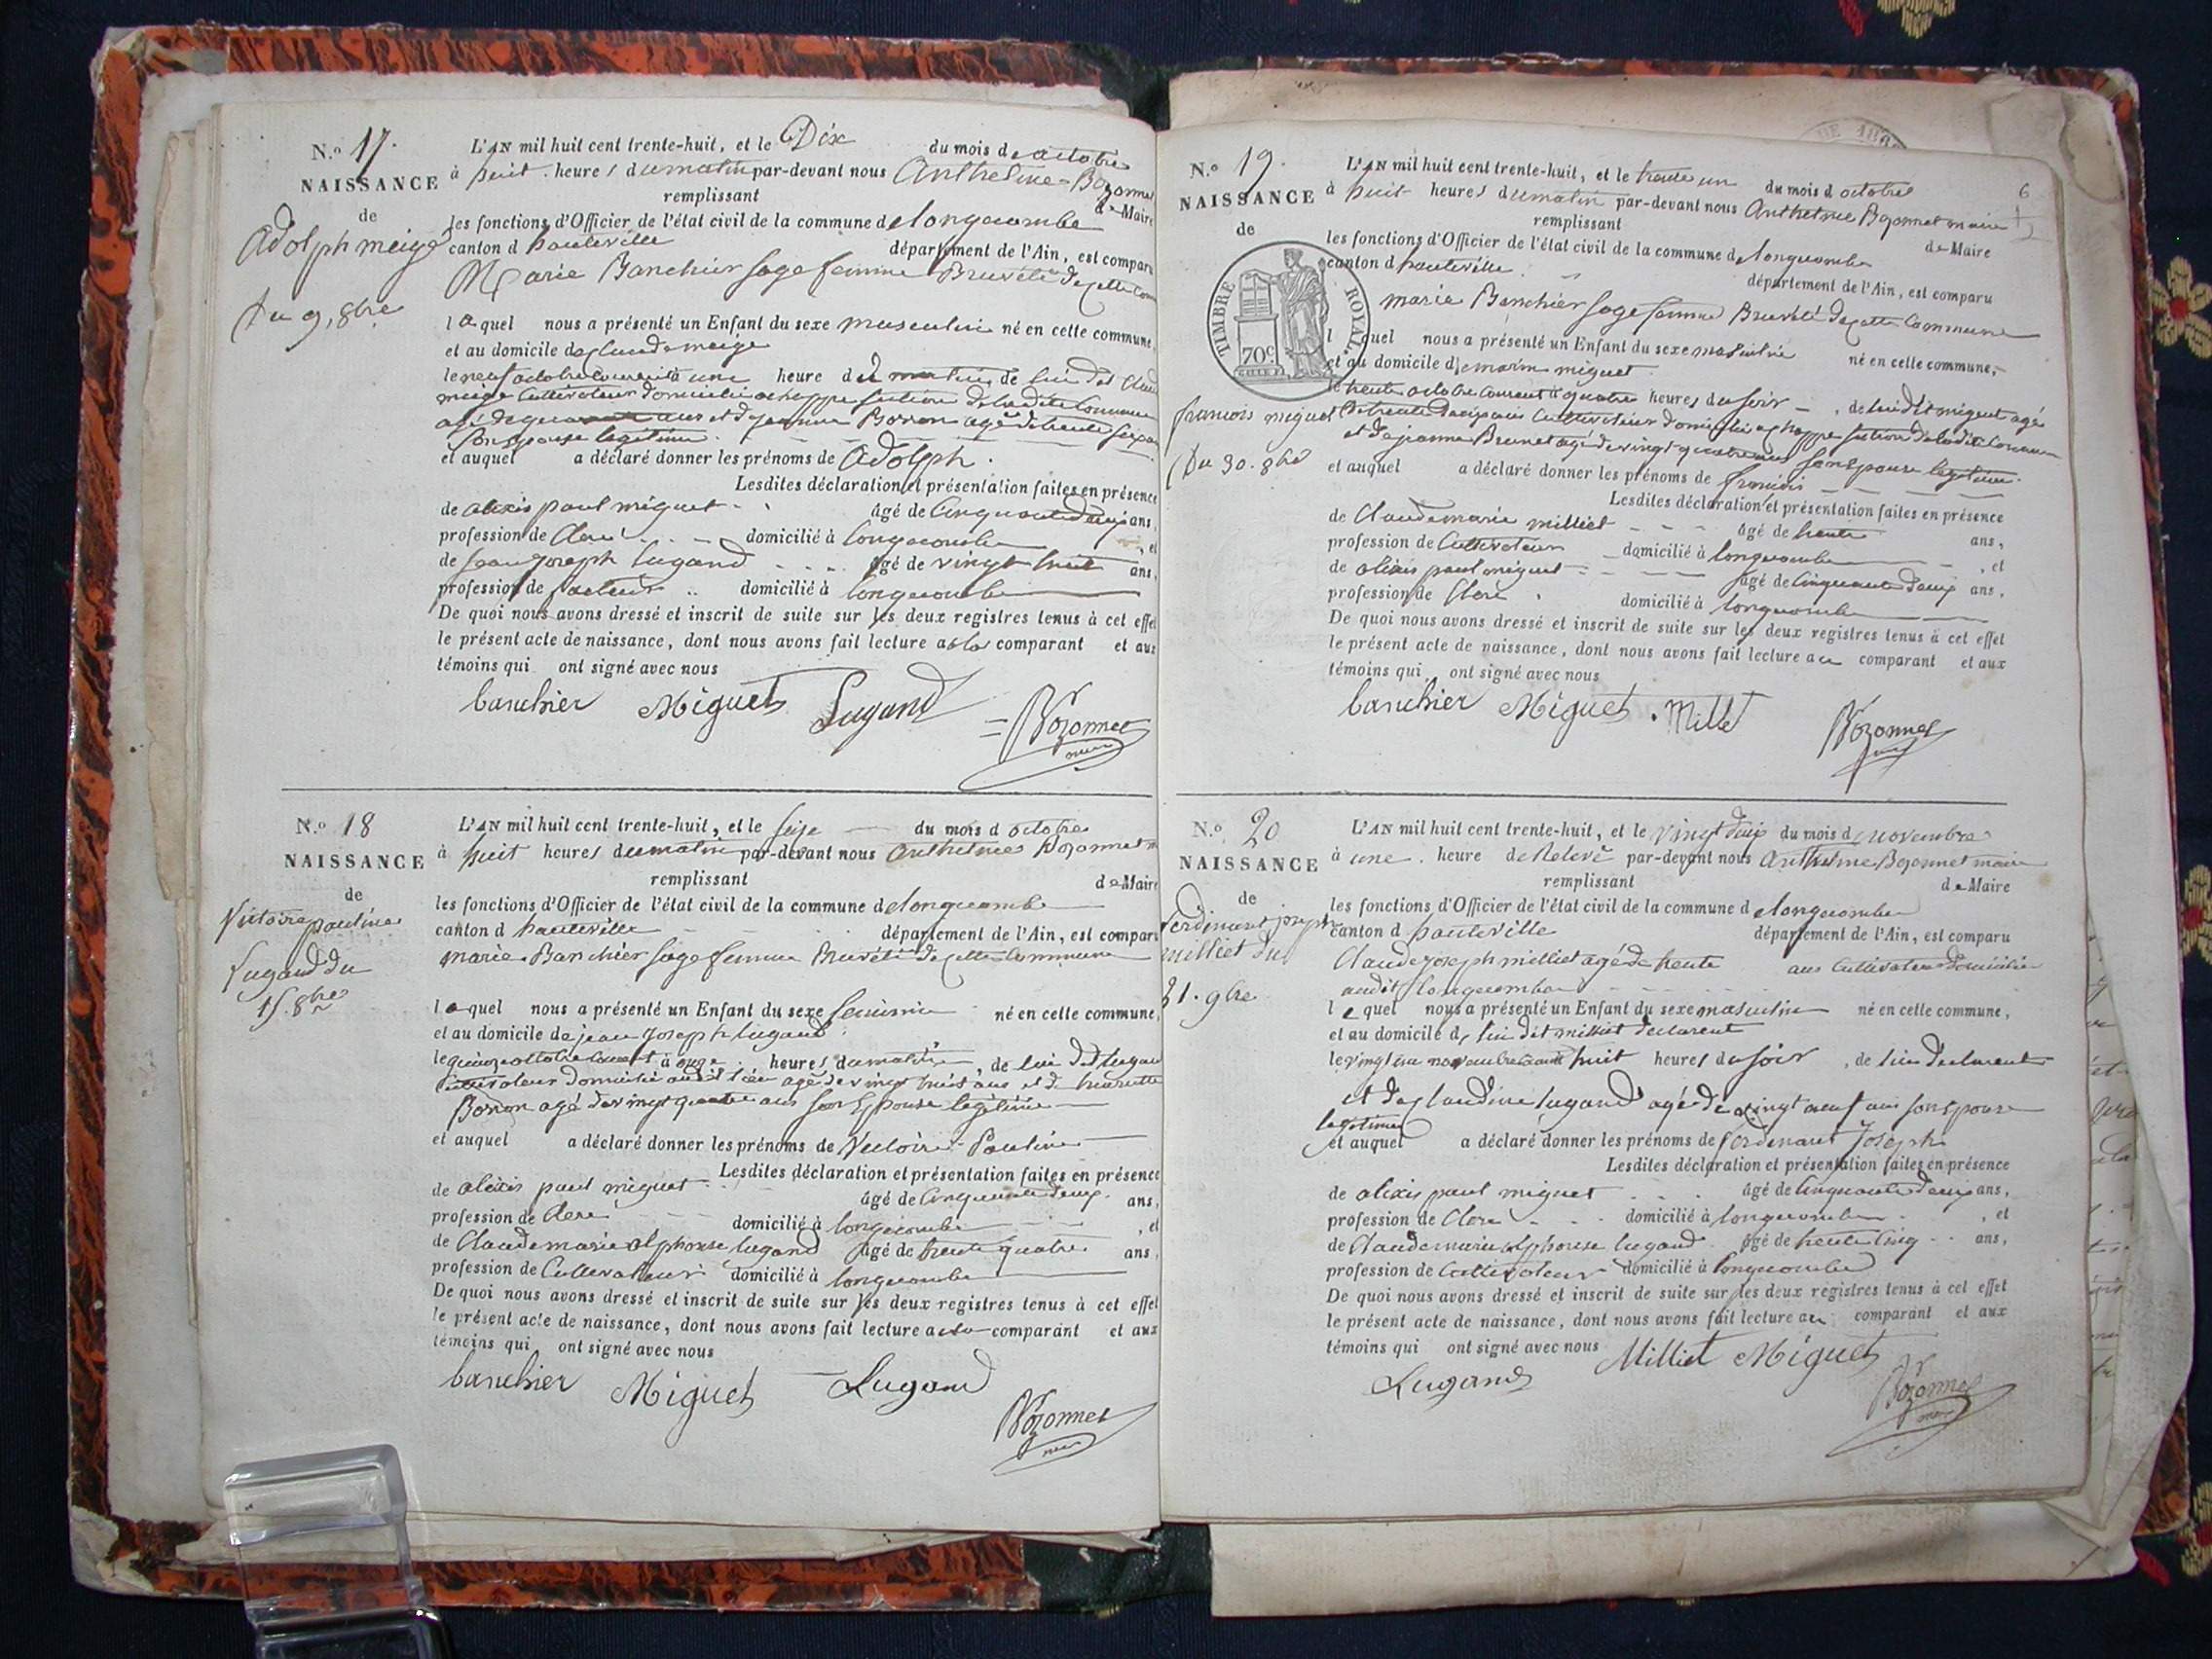 N.o 17.
NAISSANCE
de
Adolph meige
du 9, 8bre
L'AN mil huit cent trente-huit, et le Dix du mois d'octobre
à huit heures du matin par-devant nous Anthelme Bozonnet
remplissant de Maire
les fonctions d'Officier de l'état civil de la commune de longecombe
canton d hauteville département de l'Ain, est comparu
Marie Banchier sage femme Brevété de cette
laquel nous a présenté un Enfant du sexe masculin né en cette commune,
et au domicile de claude meige
le neuf octobre courant à une heure du matin de lui dit
meige Cultivateur domicilié a section de la dite Commune
agé de ans et de jeanne Borron agé de trente
son epouse legitime.
et auquel a déclaré donner les prénoms de Adolph.
Lesdites déclaration et présentation faites en présence
de alexis paul miguet âgé de Cinquante deux ans,
profession de Clerc domicilié à longecombe, et
de jean joseph lugand âgé de vingt huit ans,
profession de facteur domicilié à longecombe
De quoi nous avons dressé et inscrit de suite sur les deux registres tenus à cet effet
le présent acte de naissance, dont nous avons fait lecture a la comparant et aux
témoins qui ont signé avec nous
banchier Miguet Lugand Bozonnet
maire
N.o 18
NAISSANCE
de
Victoire pauline
Lugand du
15. 8bre
L'AN mil huit cent trente-huit, et le seize du mois d octobre
à huit heures du matin par-devant nous Anthelme Bozonnet
remplissant de Maire
les fonctions d'Officier de l'état civil de la commune de longecombe
canton d hauteville département de l'Ain, est comparu
marie Banchier sage femme Brevété de cette Commune
laquel nous a présenté un Enfant du sexe feminin né en cette commune,
et au domicile de jean joseph lugand
le quinze octobre courant à onze heures du matin, de lui dit lugand
Cultivateur domicilié audit lieu agé de vingt huit ans et de
Borron agé de vingt quatre ans son Epouse legitime
et auquel a déclaré donner les prénoms de Victoire Pauline
Lesdites déclaration et présentation faites en présence
de alexis paul miguet âgé de Cinquante deux ans,
profession de Clerc domicilié à longecombe, et
de Claude marie alphonse lugand âgé de trente quatre ans,
profession de Cultivateur domicilié à longecombe
De quoi nous avons dressé et inscrit de suite sur les deux registres tenus à cet effet
le présent acte de naissance, dont nous avons fait lecture a la comparant et aux
témoins qui ont signé avec nous
banchier Miguet Lugand
Bozonnet
maire
6
N.o 19.
NAISSANCE
de
TIMBRE ROYAL.
70c
francois miguet
du 30. 8bre
L'AN mil huit cent trente-huit, et le trente un du mois d octobre
à huit heures du matin par-devant nous Anthelme Bozonnet maire
remplissant de Maire
les fonctions d'Officier de l'état civil de la commune de longecombe
canton d hauteville département de l'Ain, est comparu
marie Banchier sage femme Brevété de cette Commune
l quel nous a présenté un Enfant du sexe masculin né en cette commune,
et au domicile de marin miguet
le trente octobre courant à quatre heures du soir, de lui dit miguet agé
de trente ans Cultivateur domicilié a section de la dite Commune
et de jeanne Brunet agé de vingt quatre ans son Epouse legitime.
et auquel a déclaré donner les prénoms de francois
Lesdites déclaration et présentation faites en présence
de Claude marie milliet âgé de trente ans,
profession de Cultivateur domicilié à longecombe, et
de alexis paul miguet âgé de Cinquante deux ans,
profession de Clerc domicilié à longecombe
De quoi nous avons dressé et inscrit de suite sur les deux registres tenus à cet effet
le présent acte de naissance, dont nous avons fait lecture au comparant et aux
témoins qui ont signé avec nous
banchier Miguet Millet Bozonnet
N.o 20
NAISSANCE
de
ferdinant joseph
milliet du
21. 9bre
L'AN mil huit cent trente-huit, et le vingt deux du mois d novembre
à une heure de Relevé par-devant nous Anthelme Bozonnet maire
remplissant de Maire
les fonctions d'Officier de l'état civil de la commune de longecombe
canton d hauteville département de l'Ain, est comparu
Claude joseph milliet agé de trente ans Cultivateur domicilié
audit longecombe
lequel nous a présenté un Enfant du sexe masculin né en cette commune,
et au domicile de lui dit milliet declarent
le vingt un novembre courant huit heures du soir, de lui declarent
et de claudine lugand agé de vingt neuf ans son Epouse
legitime
et auquel a déclaré donner les prénoms de ferdinant Joseph
Lesdites déclaration et présentation faites en présence
de alexis paul miguet âgé de Cinquante deux ans,
profession de Clerc domicilié à longecombe, et
de Claude marie alphonse lugand âgé de trente cinq ans,
profession de Cultivateur domicilié à longecombe
De quoi nous avons dressé et inscrit de suite sur les deux registres tenus à cet effet
le présent acte de naissance, dont nous avons fait lecture au comparant et aux
témoins qui ont signé avec nous Milliet Miguet
Lugand Bozonnet
maire